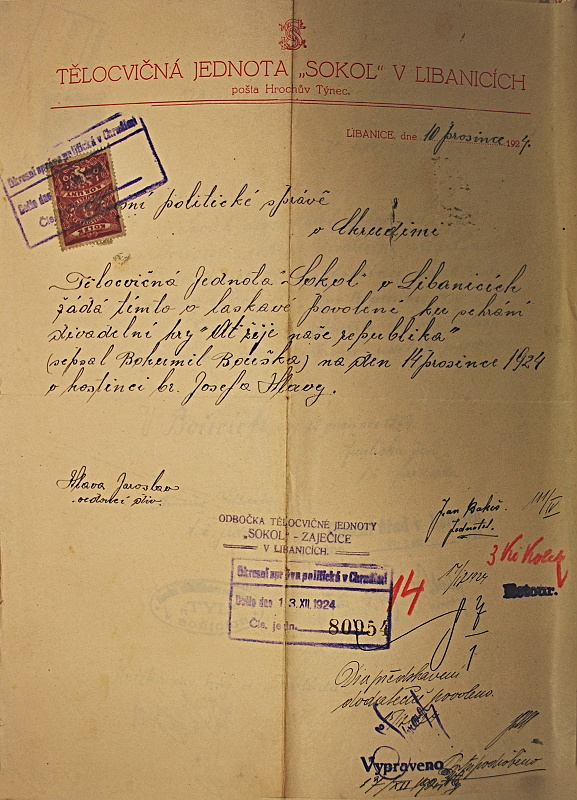 TĚLOCVIČNÁ JEDNOTA „SOKOL" V LIBANICÍCH
pošta Hrochův Týnec.
LIBANICE, dne 10 prosince 1924.
Okresní správa politická v Chrudimi
Došlo dne
Čís.
politické správě
v Chrudimi
Tělocvičná Jednota "Sokol" v Libanicích
žádá tímto o laskavé povolení ku sehrání
divadelní hry "Ať žije naše republika"
(sepsal Bohumil Bouška) na den 14 prosince 1924
v hostinci br. Josefa Hlavy.
Hlava Jaroslav
vedoucí div.
Jan Bakeš
Jednatel.
ODBOČKA TĚLOCVIČNÉ JEDNOTY
„SOKOL" - ZAJEČICE
V LIBANICÍCH.
3 Kč Kolek
Okresní správa politická v Chrudimi
Došlo dne 13. XII. 1924
Čís. jedn. 80954
14
Retour.
Dia představení
dodatečně povoleno.
Vypraveno